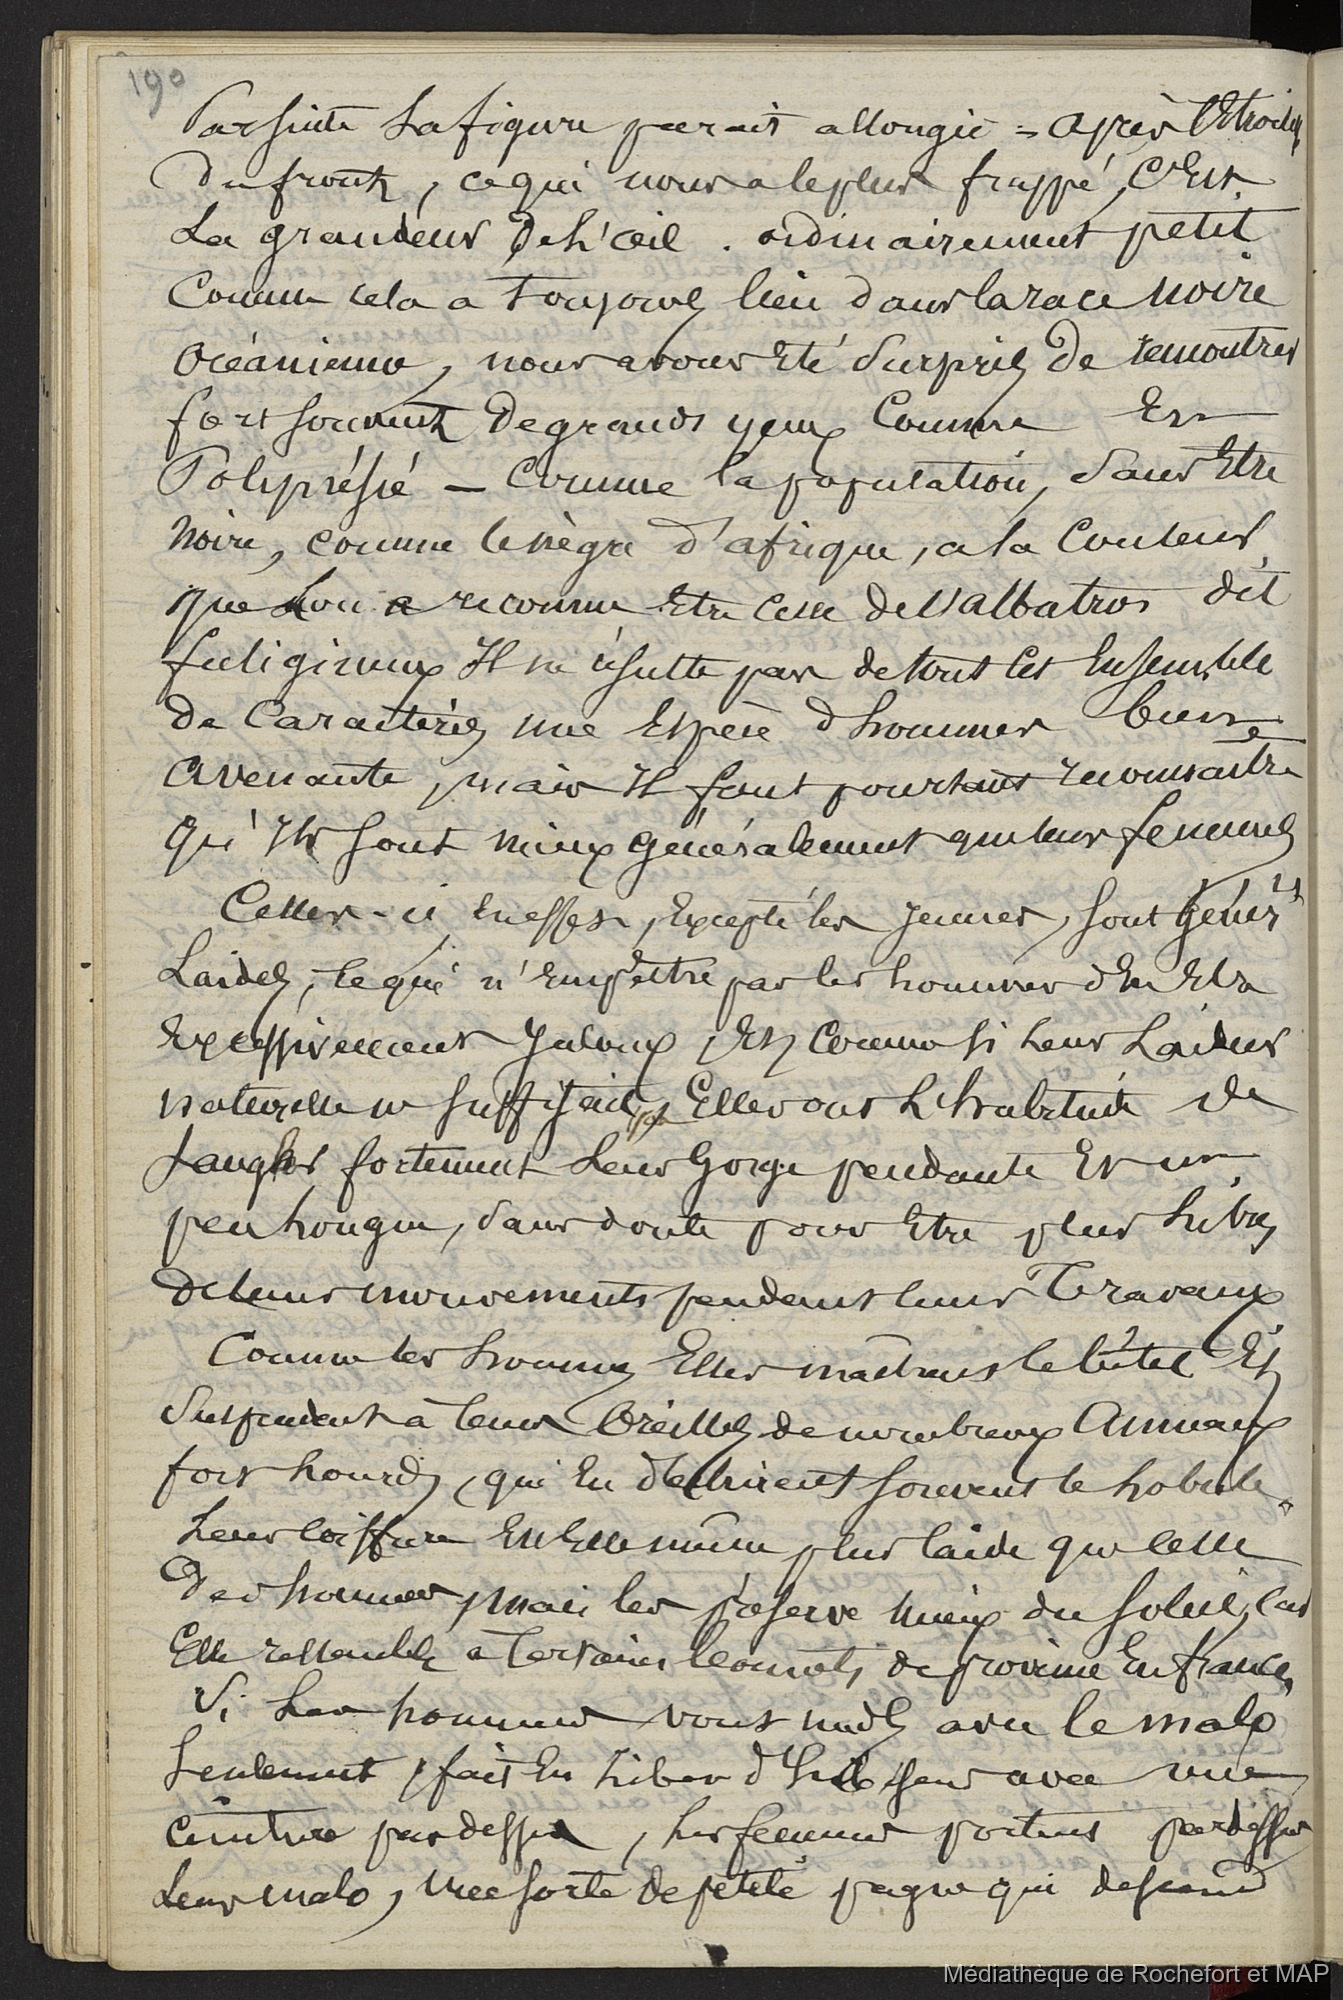 190
Par suite la figure parait allongée = après l'Etroitesse
du front, ce qui nous a le plus frappé, c'Est
La grandeur de L'œil. ordinairement petit
Comme cela a Toujours lieu dans la race noire
Océanienne, nous avons Eté Surpris de remontrer
fort souvent de grands yeux Comme En
Polynésie — Comme la population, Sans Etre
noire, comme le nègre d'afrique, a la Couleur
que Lon a reconnu Etre Celle de l'albatros dit
fuligineux Il ne résulte pas de tout Cet Ensemble
de Caractères une Espèce d'hommes bien
avenante, mais Il faut pourtant reconnaitre
qu'Ils sont mieux généralement que leurs femmes
Celles-ci En effet, Excepté les jeunes, sont génér.
Laides, ce qui n'Empêche pas les hommes d'En Etre
Excessivement Jaloux, Et Comme si leur Laideur
naturelle ne suffisait pas Elles ont L'habitude de
sangler fortement Leur Gorge pendante Et un
peu longue, sans doute pour Etre plus Libres
de leurs mouvements pendant leurs Travaux
Comme les hommes Elles mâchent le bétel Et
Suspendent à leurs Oreilles de nombreux Anneaux
fort lourds, qui En déchirent souvent le lobule.
Leur Coiffure Est Elle même plus laide que celle
Des hommes, mais les préserve mieux du soleil, car
Elle ressemble a Certains bonnets de province En france,
Si Les hommes vont nuds avec le malo
Seulement, fait En liber d'hibiscus avec une
Ceinture par dessus, Les femmes portent par dessus
Leur malo, une sorte de petite pagne qui descend
Médiathèque de Rochefort et MAP